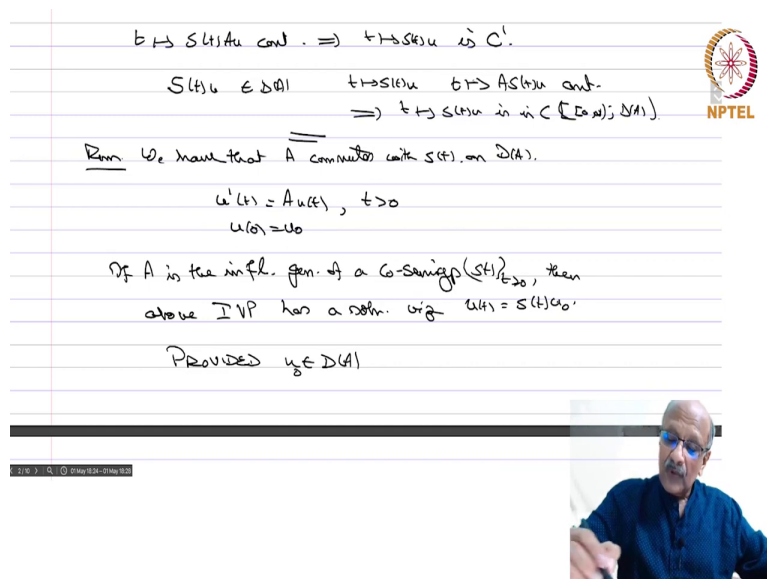 t ↦ S(t)Au cont. ⇒ t↦S(t)u is C¹.
S(t)u ∈ D(A) t↦S(t)u t↦ AS(t)u cont.
⇒ t↦ S(t)u is in C([0,∞); D(A)).
NPTEL
Rem. We have that A commutes with S(t) on D(A).
u'(t) = Au(t), t>0
u(0)=u₀
If A is the infl. gen. of a C₀-semigp {S(t)}t≥0, then
above IVP has a soln. viz u(t) = S(t)u₀.
PROVIDED u₀ ∈ D(A)
2/10 01 May 18:24 – 01 May 18:26